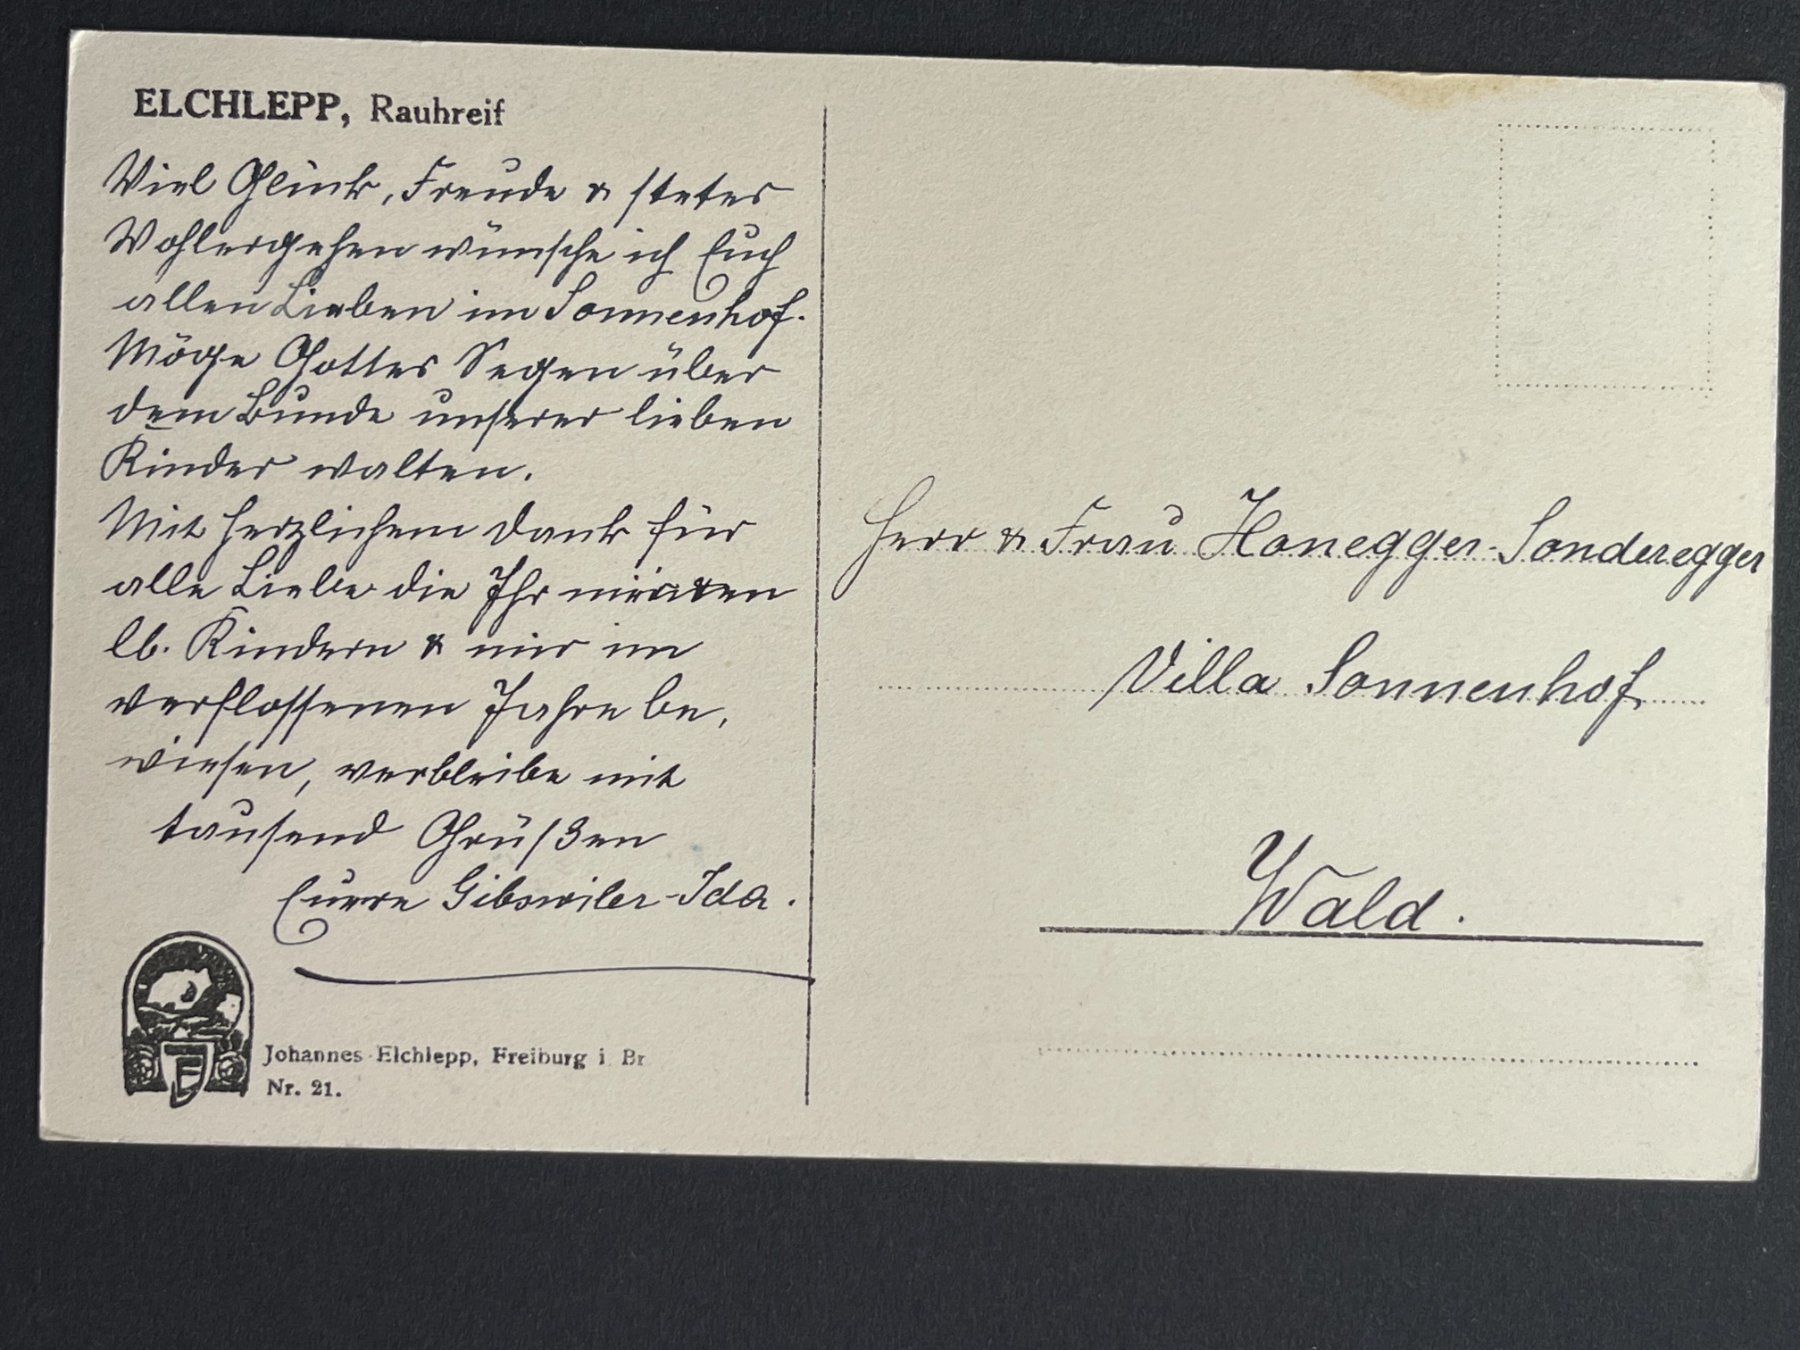 ELCHLEPP, Rauhreif
Viel Glück, Freude & stetes
Wohlergehen wünsche ich Euch
allen Lieben im Sonnenhof.
Möge Gottes Segen über
dem Bunde unserer lieben
Kinder walten.
Mit herzlichem Dank für
alle Liebe die Ihr
lb. Kindern & mir im
verflossenen Jahre be,
wiesen, verbleibe mit
tausend Grüßen
Euere Gibswiler-Ida.
Johannes Elchlepp, Freiburg i. Br
Nr. 21.
Herr & Frau Honegger-Sonderegger
Villa Sonnenhof
Wald.